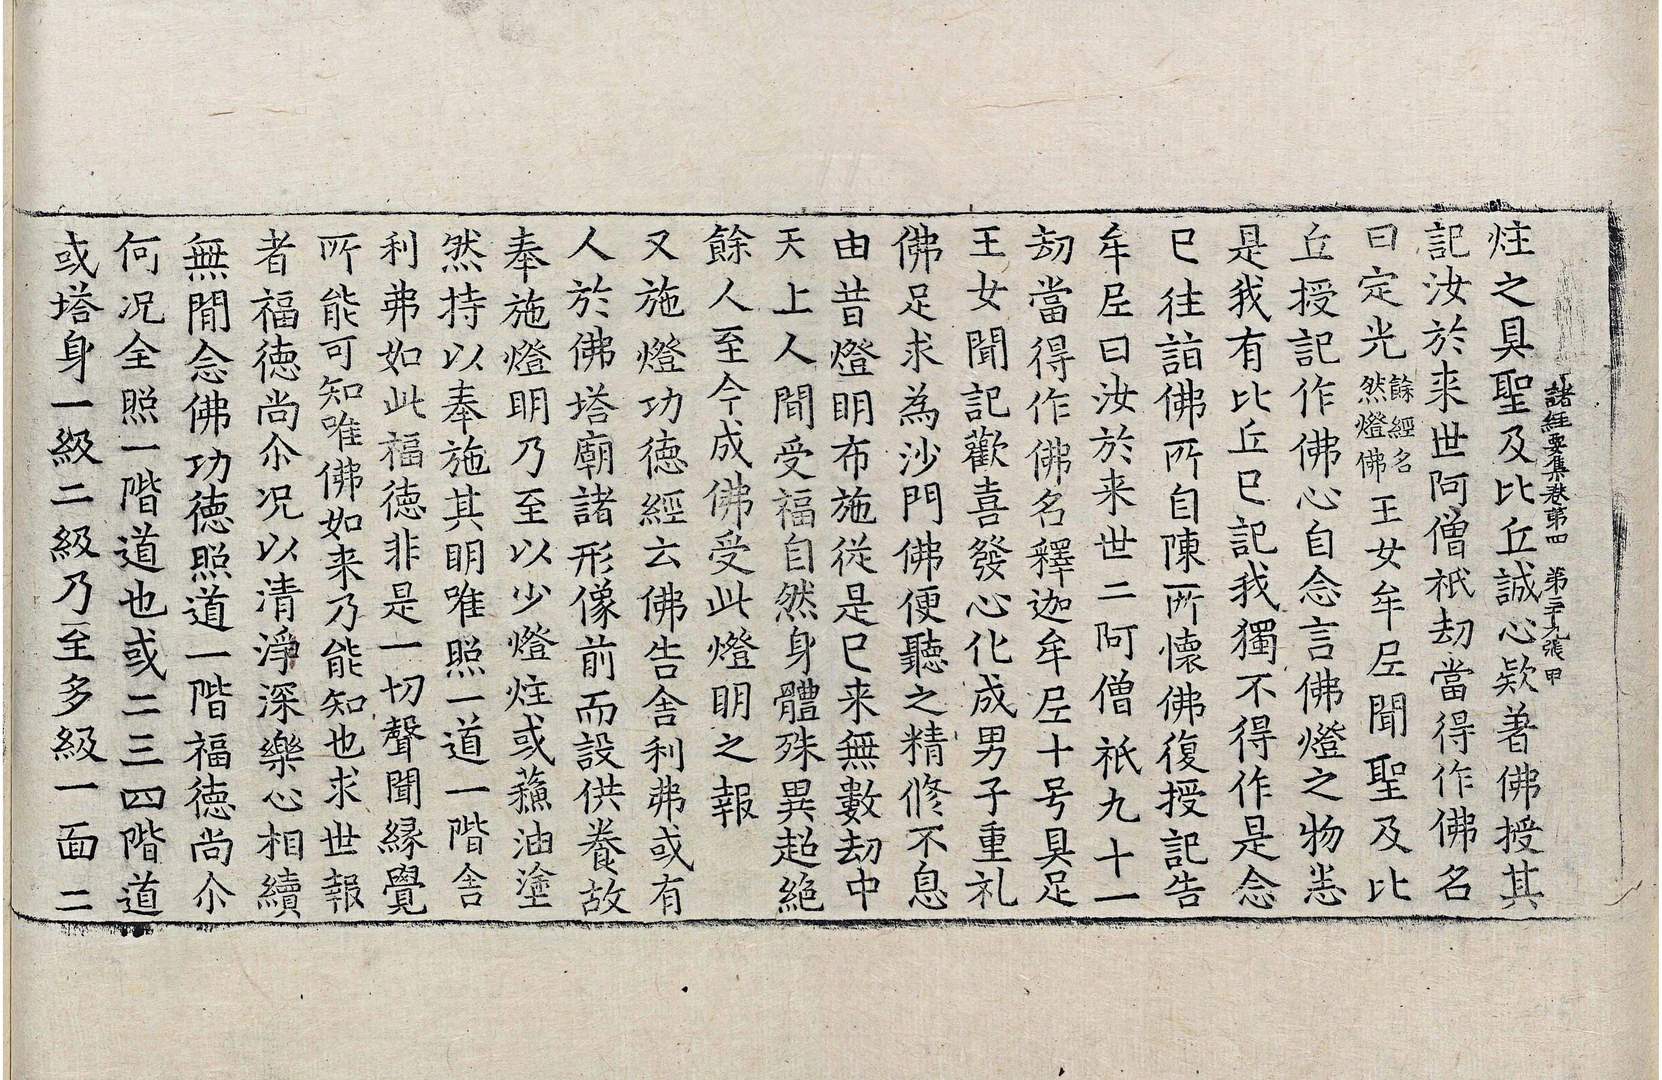 諸經要集卷第四　第三十九張　甲
炷之具聖及比丘誠心欵著佛授其
記汝於来世阿僧祇劫當得作佛名
曰定光餘經名然燈佛王女牟尼聞聖及比
丘授記作佛心自念言佛燈之物悉
是我有比丘已記我獨不得作是念
已往詣佛所自陳所懷佛復授記告
牟尼曰汝於来世二阿僧祇九十一
劫當得作佛名釋迦牟尼十号具足
王女聞記歡喜發心化成男子重礼
佛足求為沙門佛便聽之精俢不息
由昔燈明布施從是已来無數劫中
天上人間受福自然身體殊異超絶
餘人至今成佛受此燈明之報
又施燈功德經云佛告舍利弗或有
人於佛塔廟諸形像前而設供養故
奉施燈明乃至以少燈炷或蘓油塗
然持以奉施其明唯照一道一階舍
利弗如此福德非是一切聲聞緣覺
所能可知唯佛如来乃能知也求世報
者福德尚尒况以清淨深樂心相續
無間念佛功德照道一階福德尚尒
何况全照一階道也或二三四階道
或塔身一級二級乃至多級一面二